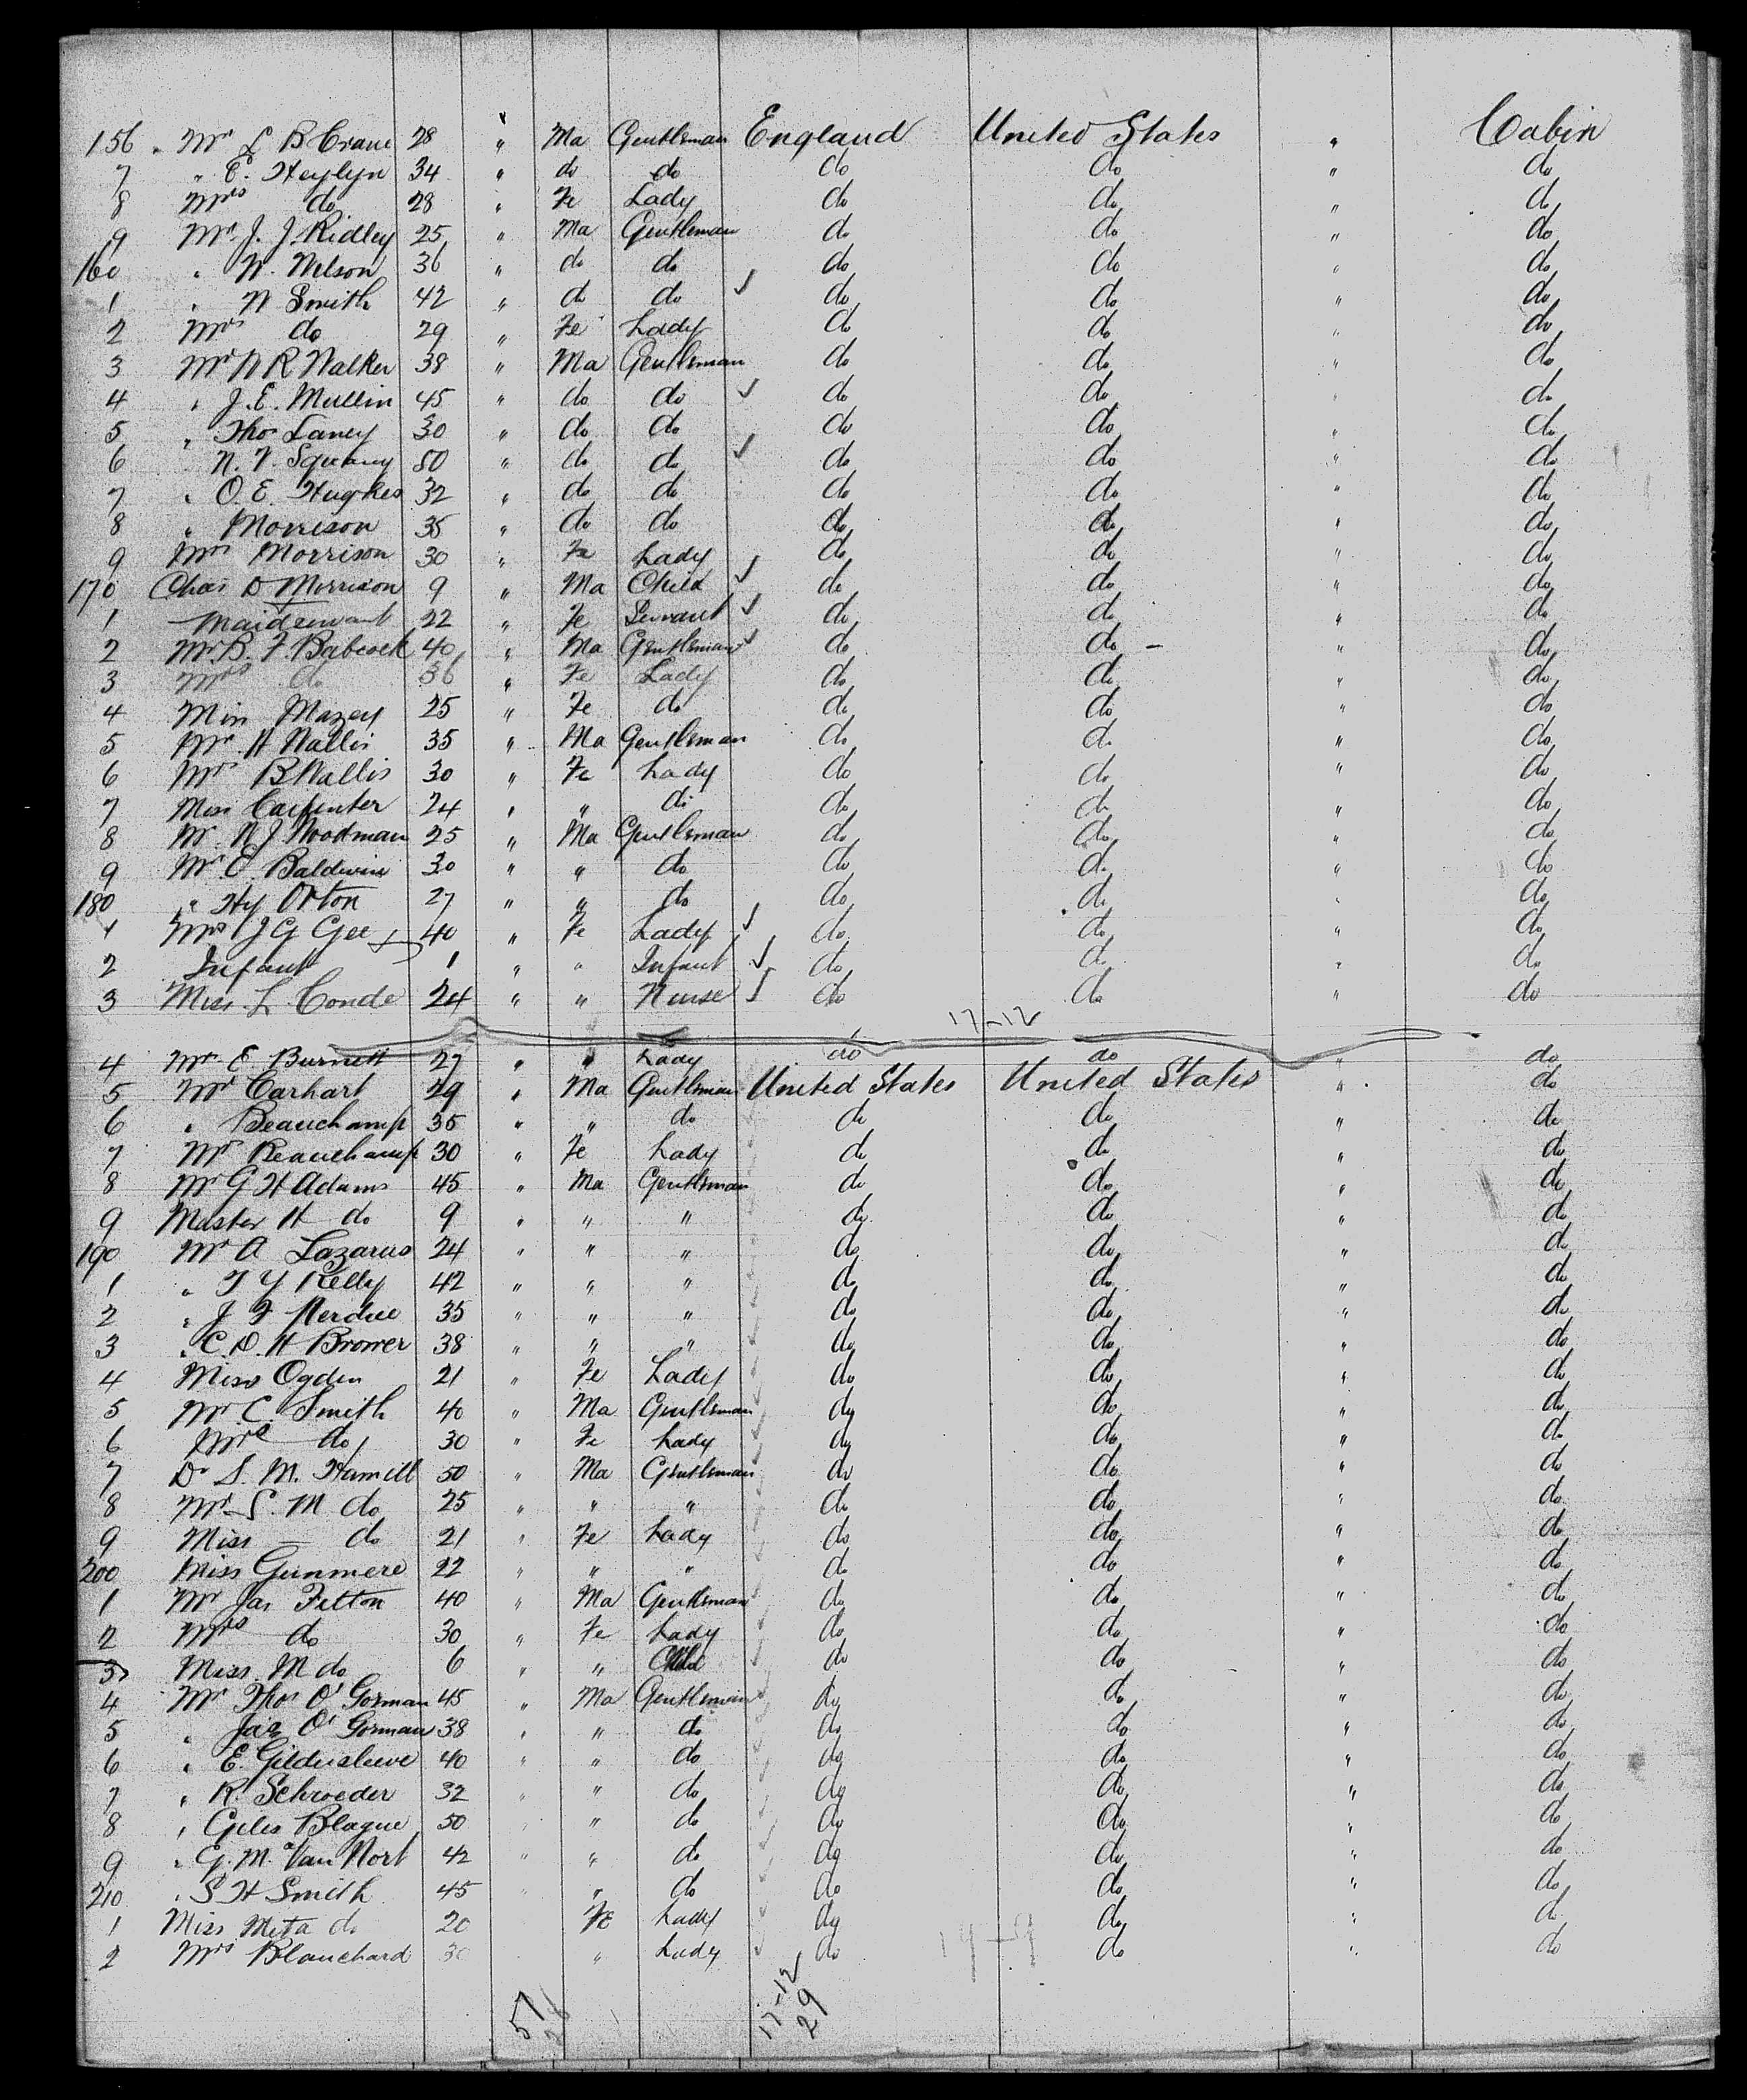 156 " Mr L B Crane 28 " Ma Gentleman England United States " Cabin
7 " E. Heylyn 34 " do do do do " do
8 Mrs do 28 " Fe Lady do do " do
9 Mr J. J. Ridley 25 " Ma Gentleman do do " do
160 " W. Welson 36 " do do do do " do
1 " W Smith 42 " do do do do " do
2 Mrs do 29 " Fe Lady do do " do
3 Mr W R Walker 38 " Ma Gentleman do do " do
4 " J. E. Mullin 45 " do do do do " do
5 " Thos Laney 30 " do do do do " do
6 " 50 " do do do do " do
7 " O. E. Hughes 32 " do do do do " do
8 " Morrison 35 " do do do do " do
9 Mrs Morrison 30 " Fe Lady do do " do
170 Chas D Morrison 9 " Ma Child do do " do
1 Maidservant 22 " Fe Servant do do " do
2 Mr B. F. Babcock 40 " Ma Gentleman do do " do
3 Mrs do 36 " Fe Lady do do " do
4 Miss Mazey 25 " Fe do do do " do
5 Mr H Wallis 35 " Ma Gentleman do do " do
6 Mrs B Wallis 30 " Fe Lady do do " do
7 Miss Carpenter 24 " " do do do " do
8 Mr W J Woodman 25 " Ma Gentleman do do " do
9 Mr E. Baldwin 30 " " do do do " do
180 " Hy Orton 27 " " do do do " do
1 Mrs J G Gee & 40 " Fe Lady do do " do
2 Infant 1 " " Infant do do " do
3 Miss L. Conde 24 " " Nurse do do " do
17-12
4 Mrs E Burnett 27 " " Lady do do " do
5 Mr Carhart 29 " Ma Gentleman United States United States " do
6 " Beauchamp 35 " " do do do " do
7 Mrs Beauchamp 30 " Fe Lady do do " do
8 Mr G H Adams 45 " Ma Gentleman do do " do
9 Master H do 9 " " " do do " do
190 Mr A Lazarus 24 " " " do do " do
1 " T Y Kelly 42 " " " do do " do
2 " J F Perdue 35 " " " do do " do
3 " C. D. H Brower 38 " " " do do " do
4 Miss Ogden 21 " Fe Lady do do " do
5 Mr C. Smith 40 " Ma Gentleman do do " do
6 Mrs do 30 " Fe Lady do do " do
7 Dr S. M. Hamill 50 " Ma Gentleman do do " do
8 Mr S. M do 25 " " " do do " do
9 Miss do 21 " Fe Lady do do " do
200 Miss Gummere 22 " " " do do " do
1 Mr Jas Fitton 40 " Ma Gentleman do do " do
2 Mrs do 30 " Fe Lady do do " do
3 Miss M do 6 " " Child do do " do
4 Mr Thos O'Gorman 45 " Ma Gentleman do do " do
5 " Jas O'Gorman 38 " " do do do " do
6 " E. Gildersleeve 40 " " do do do " do
7 " R. Schroeder 32 " " do do do " do
8 " Giles Blague 50 " " do do do " do
9 " G. M. Van Nort 42 " " do do do " do
210 " S H Smith 45 " " do do do " do
1 Miss Meta do 20 Fe Lady do do " do
2 Mrs Blanchard 30 " Lady do do " do
19-9
57
26
17-12
29